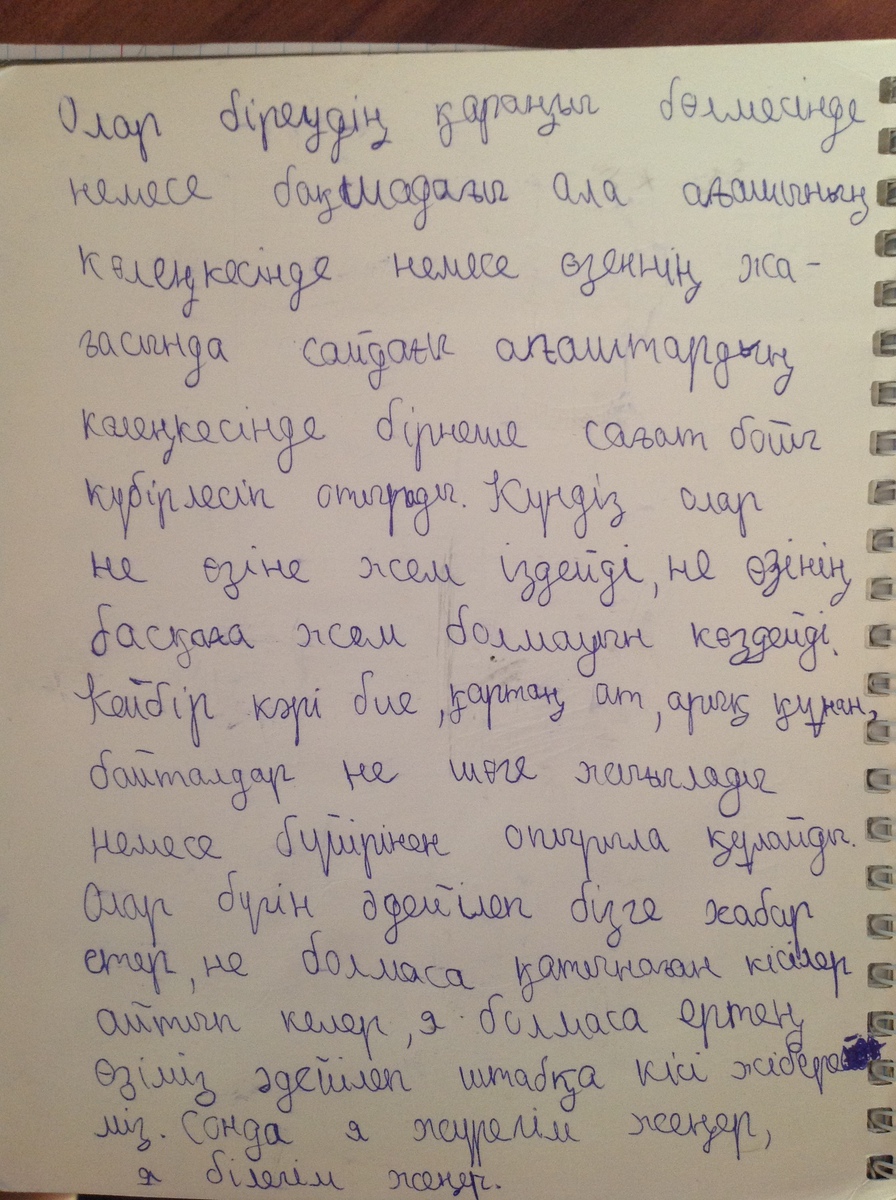 Олар біреудің қараңғы бөлмесінде
немесе бақшадағы ала ағашының
көлеңкесінде немесе өзеннің жа-
ғасында сайдағы ағаштардың
көлеңкесінде бірнеше сағат бойы
күбірлесіп отырады. Күндіз олар
не өзіне жем іздейді, не өзінің
басқаға жем болмауын көздейді.
Кейбір кәрі бие, қартаң ат, арық құнан,
байталдар не шөге жығылады
немесе бүйірінен опырыла құлайды.
Олар бүгін әдейілеп бізге хабар
етер, не болмаса қатынаған кісілер
айтып келер, я болмаса ертең
өзіміз әдейілеп штабқа кісі жібере
міз. Сонда я жүрегім жеңер,
я білегім жеңер.